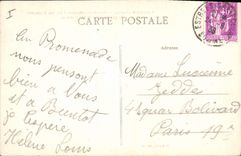 CARTE POSTALE
En Promenade
nous pensons
bien a Vous
et a Bientot
j'espere
Helene Louis
Adresse
Madame Lucienne
4 square Bolivard
Paris 19e